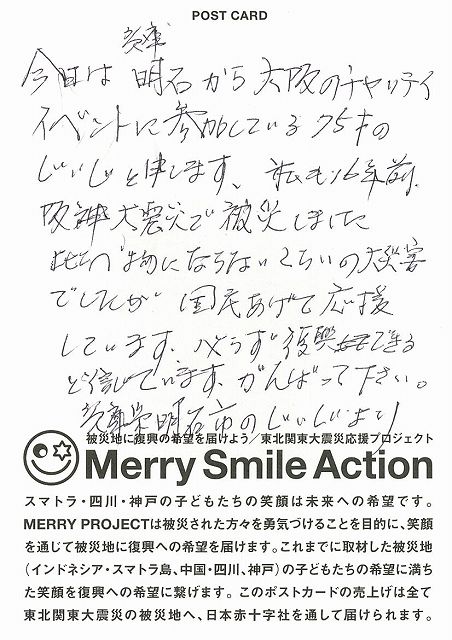 POST CARD
兵庫
今日は 明石から大阪のチャリティ
イベントに参加している75才の
じいじと申します、私も16年前、
阪神大震災で被災しました
比べ物にならないくらいの大災害
でしたが 国民あげて応援
しています、必らず復興できる
と信じています、がんばって下さい。
兵庫県明石市のじいじより
被災地に復興の希望を届けよう／東北関東大震災応援プロジェクト
Merry Smile Action
スマトラ・四川・神戸の子どもたちの笑顔は未来への希望です。
MERRY PROJECTは被災された方々を勇気づけることを目的に、笑顔
を通じて被災地に復興への希望を届けます。これまでに取材した被災地
（インドネシア・スマトラ島、中国・四川、神戸）の子どもたちの希望に満ち
た笑顔を復興への希望に繋げます。このポストカードの売上げは全て
東北関東大震災の被災地へ、日本赤十字社を通して届けられます。